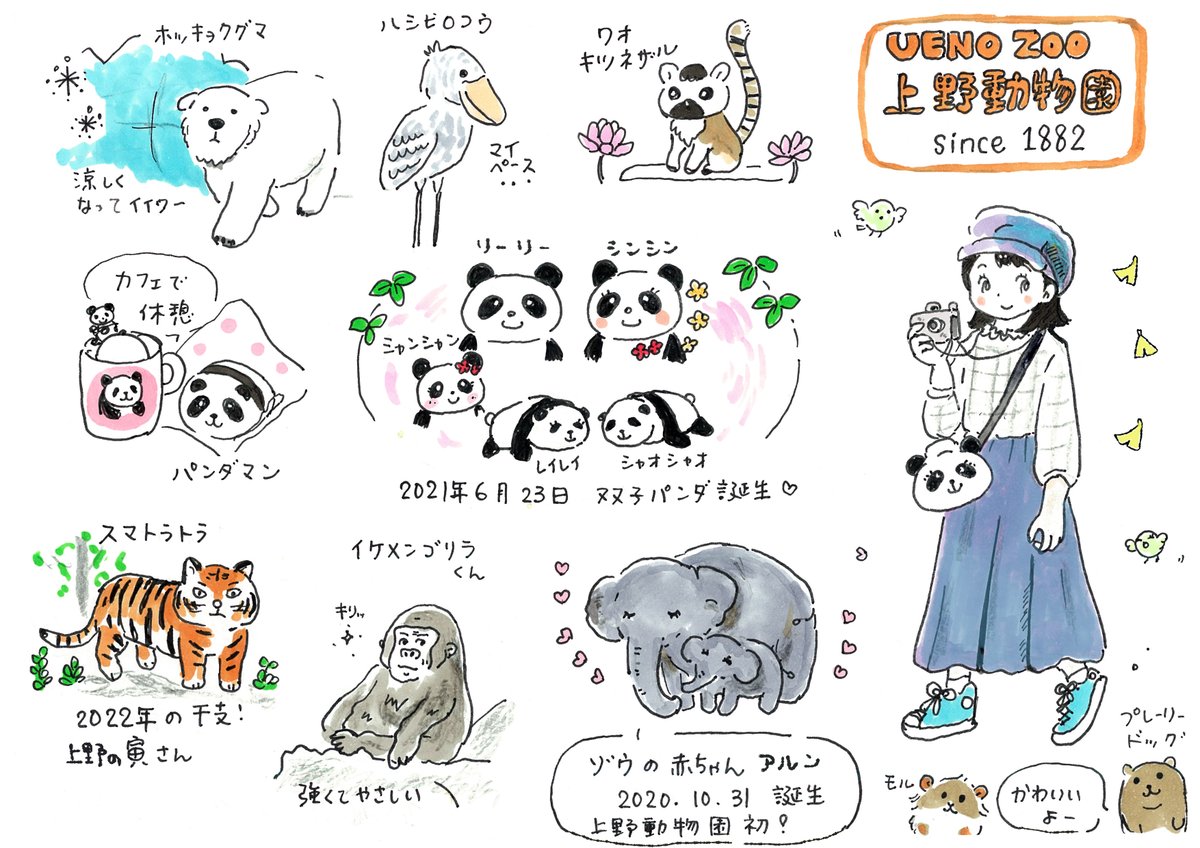 ホッキョクグマ
涼しく
なってイイワー
ハシビロコウ
マイ
ペース
...
ワオ
キツネザル
UENO ZOO
上野動物園
since 1882
カフェで
休憩
パンダマン
リーリー
シンシン
シャンシャン
レイレイ
シャオシャオ
2021年6月23日 双子パンダ誕生♡
スマトラトラ
2022年の干支!
上野の寅さん
イケメンゴリラ
くん
キリッ
強くてやさしい
ゾウの赤ちゃん アルン
2020.10.31 誕生
上野動物園初!
モル
かわいい
よー
プレーリー
ドッグ